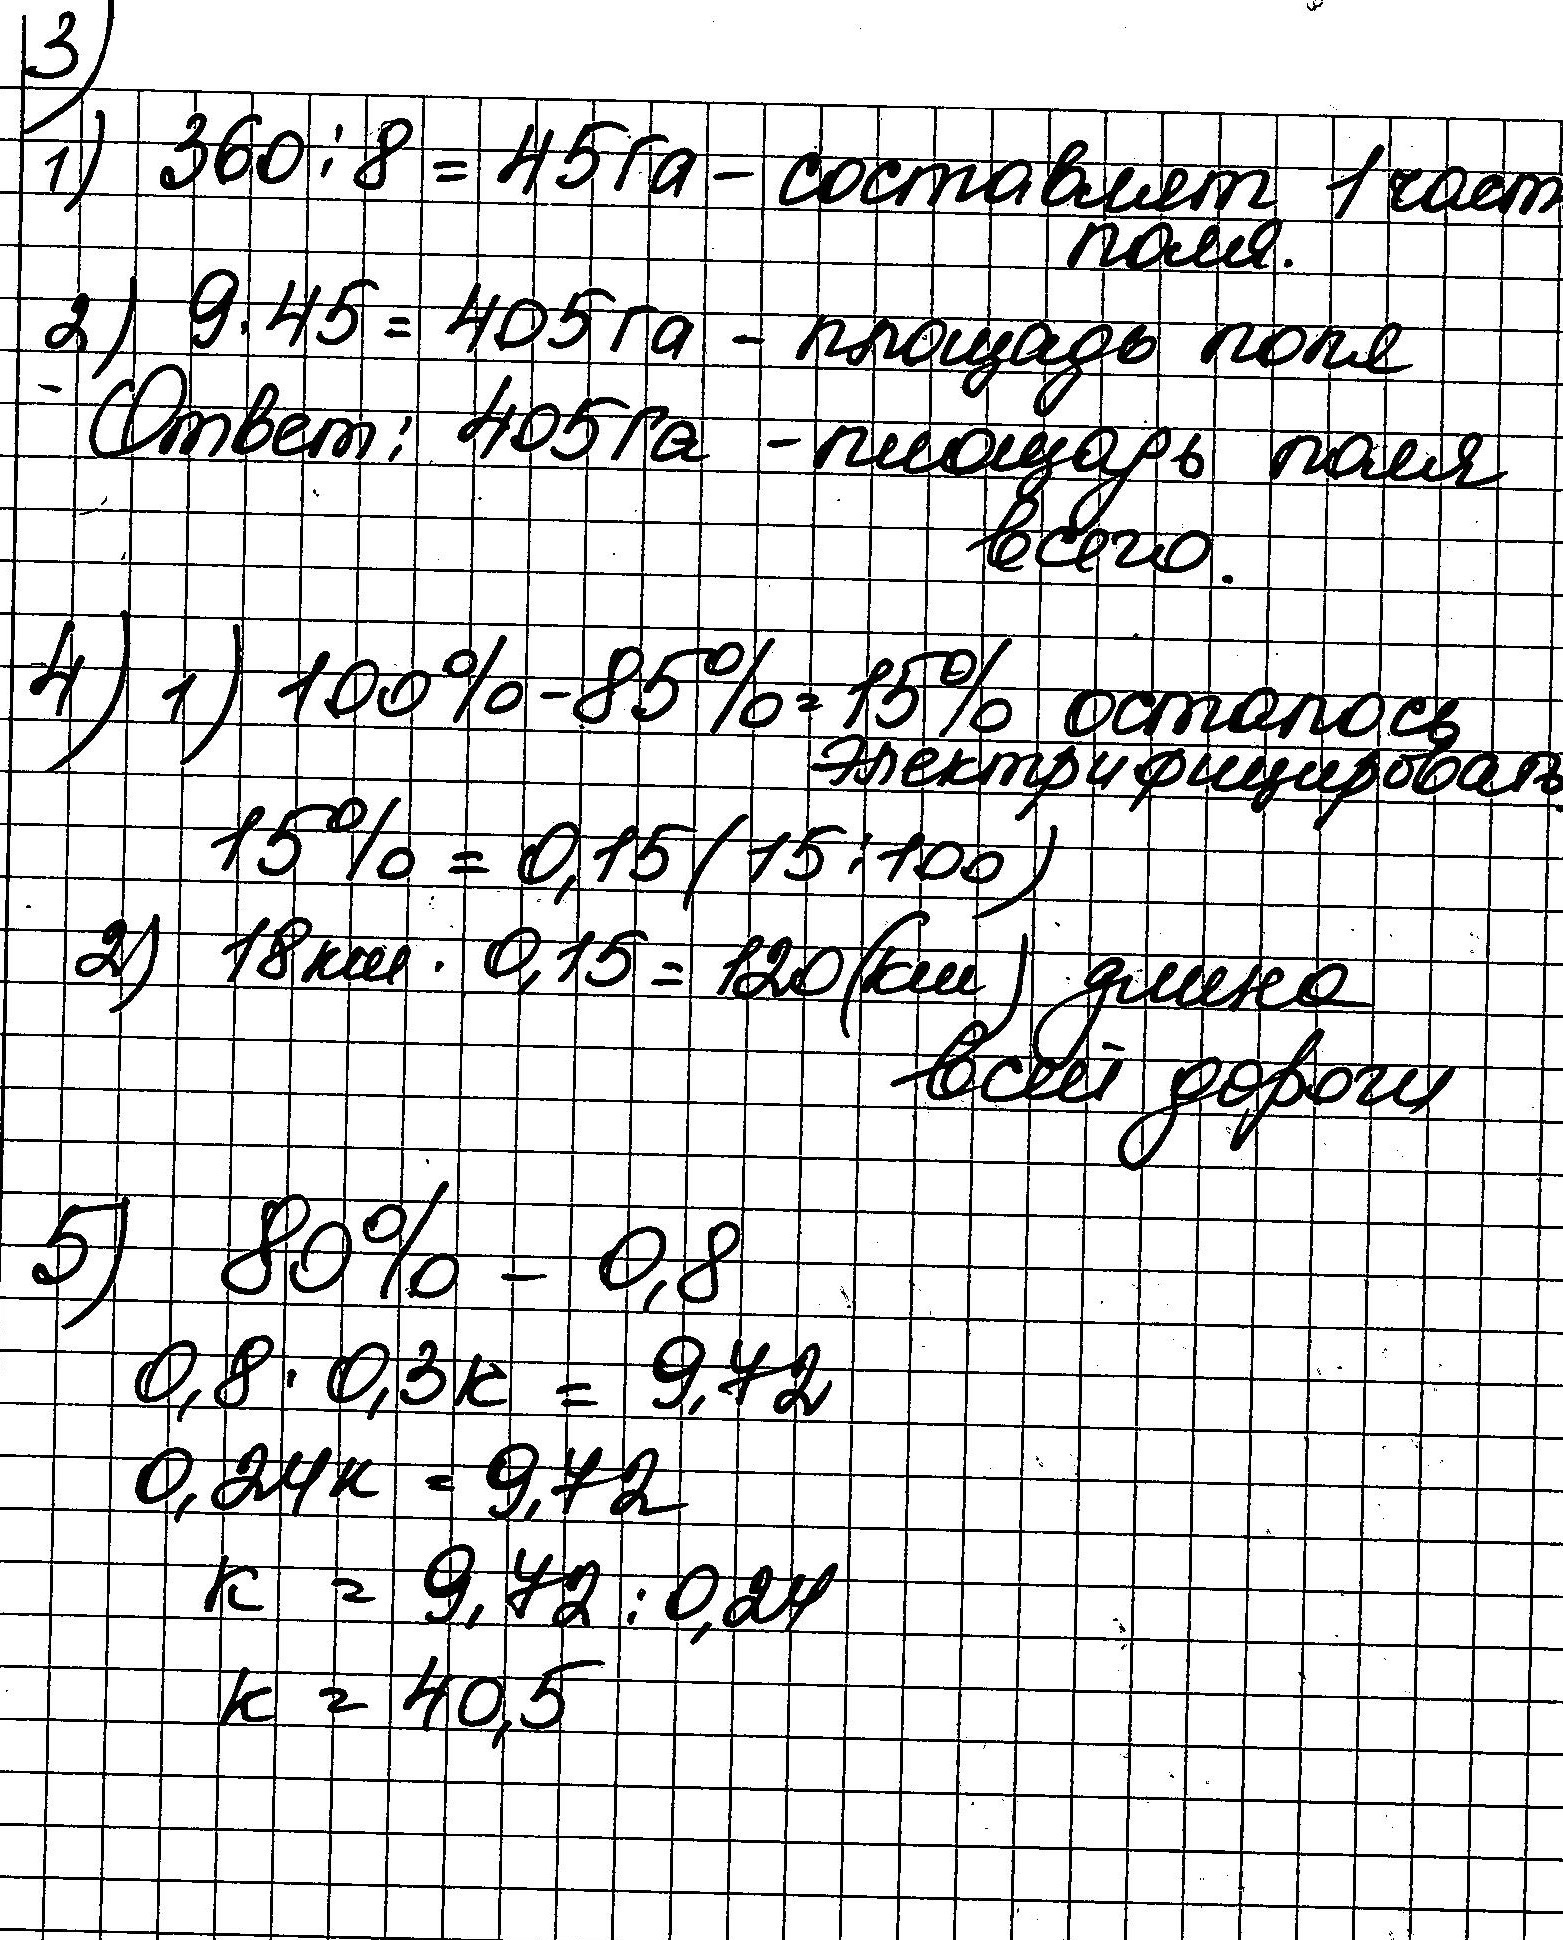 3)
1) 360:8 = 45 Га – составляет 1 част
поля.
2) 9·45 = 405 Га – площадь поля
Ответ: 405 Га – площадь поля
всего.
4) 1) 100% - 85% = 15% осталось
электрифицировать
15% = 0,15 (15:100)
2) 18 км · 0,15 = 120 (км) длина
всей дороги
5) 80% – 0,8
0,8 · 0,3к = 9,72
0,24к = 9,72
к = 9,72 : 0,24
к = 40,5